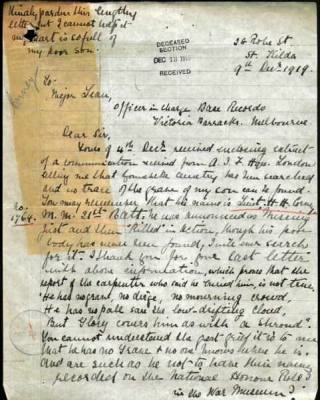 Kindly pardon this lengthy
letter but I cannot help it
my heart is so full of
my poor son.
DECEASED
SECTION
DEC 10 1919
RECEIVED
St. Kilda
9th Decr. 1919.
To
Major Lean,
Officer in charge Base Records
Victoria Barracks. Melbourne
Dear Sir,
Yours of 4th Decr. received enclosing extract
of a communication received from A.I.F. Hqrs. London
telling me that cemetery has been searched
and no trace of the grave of my son can be found.
You may remember that his name is Lieut. H. H.
no.
1764.
M.M. 21st Batt: he was announced as Missing
first and then "Killed" in action, though his poor
body has never been found, in spite ever search
for it. I thank you for your last letter
with above information, which proves that the
report of the carpenter who said he buried him, is not true,
"He has no grave, no dirge, no mourning crowd,
He has no pall save the low-drifting cloud,
But Glory covers him as with a shroud".
You cannot understand the great grief it is to me
that he has no Grave & no one knows where he is,
and are such as he not to have their names
recorded on the National Honour Rolls
in the War Museum?